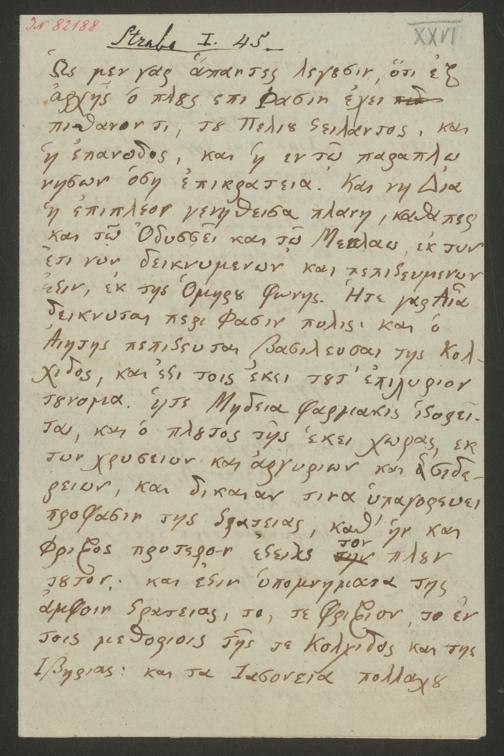 IN 82188
XXVI
Strabo I. 45.
Ὡς μεν γαρ ἁπαντες λεγουσιν, ὁτι ἐξ
ἀρχῆς ὁ πλους επι Φασιν ἐχει
πιθανον τι, του Πελιου στειλαντος, και
ἡ ἐπανοδος, και ἡ εν τῶ παραπλω
νησων ὁση ἐπικρατεια. Και νη Δια
ἡ ἐπιπλέον γενηθεισα πλανη, καθαπερ
και τῶ Ὀδυσσεῖ και τῶ Μενελαω, ἐκ των
ἐτι νυν δεικνυμενων και πεπιστευμενων
ἐστιν, ἐκ της Ὁμηρου φωνης. Ἡτε γαρ Αἶα
δεικνυται περι Φασιν πολις· και ὁ
Αιητης πεπιστευται βασιλευσαι της Κολ-
χιδος, και ἐστι τοις ἐκει τουτ' ἐπιχωριον
τουνομα. ἡτε Μηδεια φαρμακις ἱστορεῖ-
ται, και ὁ πλουτος τῆς ἐκει χωρας, ἐκ
των χρυσειων και ἀργυριων και σιδη-
ρειων, και δικαιαν τινα ὑπαγορευει
προφασιν της στρατειας, καθ' ἡν και
Φριξος προτερον ἐστειλε τον πλουν
τουτον· και ἐστιν ὑπομνηματα της
ἀμφοιν στρατειας, το, τε Φριξιον, το ἐν
τοις μεθοριοις τῆς τε Κολχιδος και της
Ιβηριας· και τα Ιασονεῖα πολλαχου